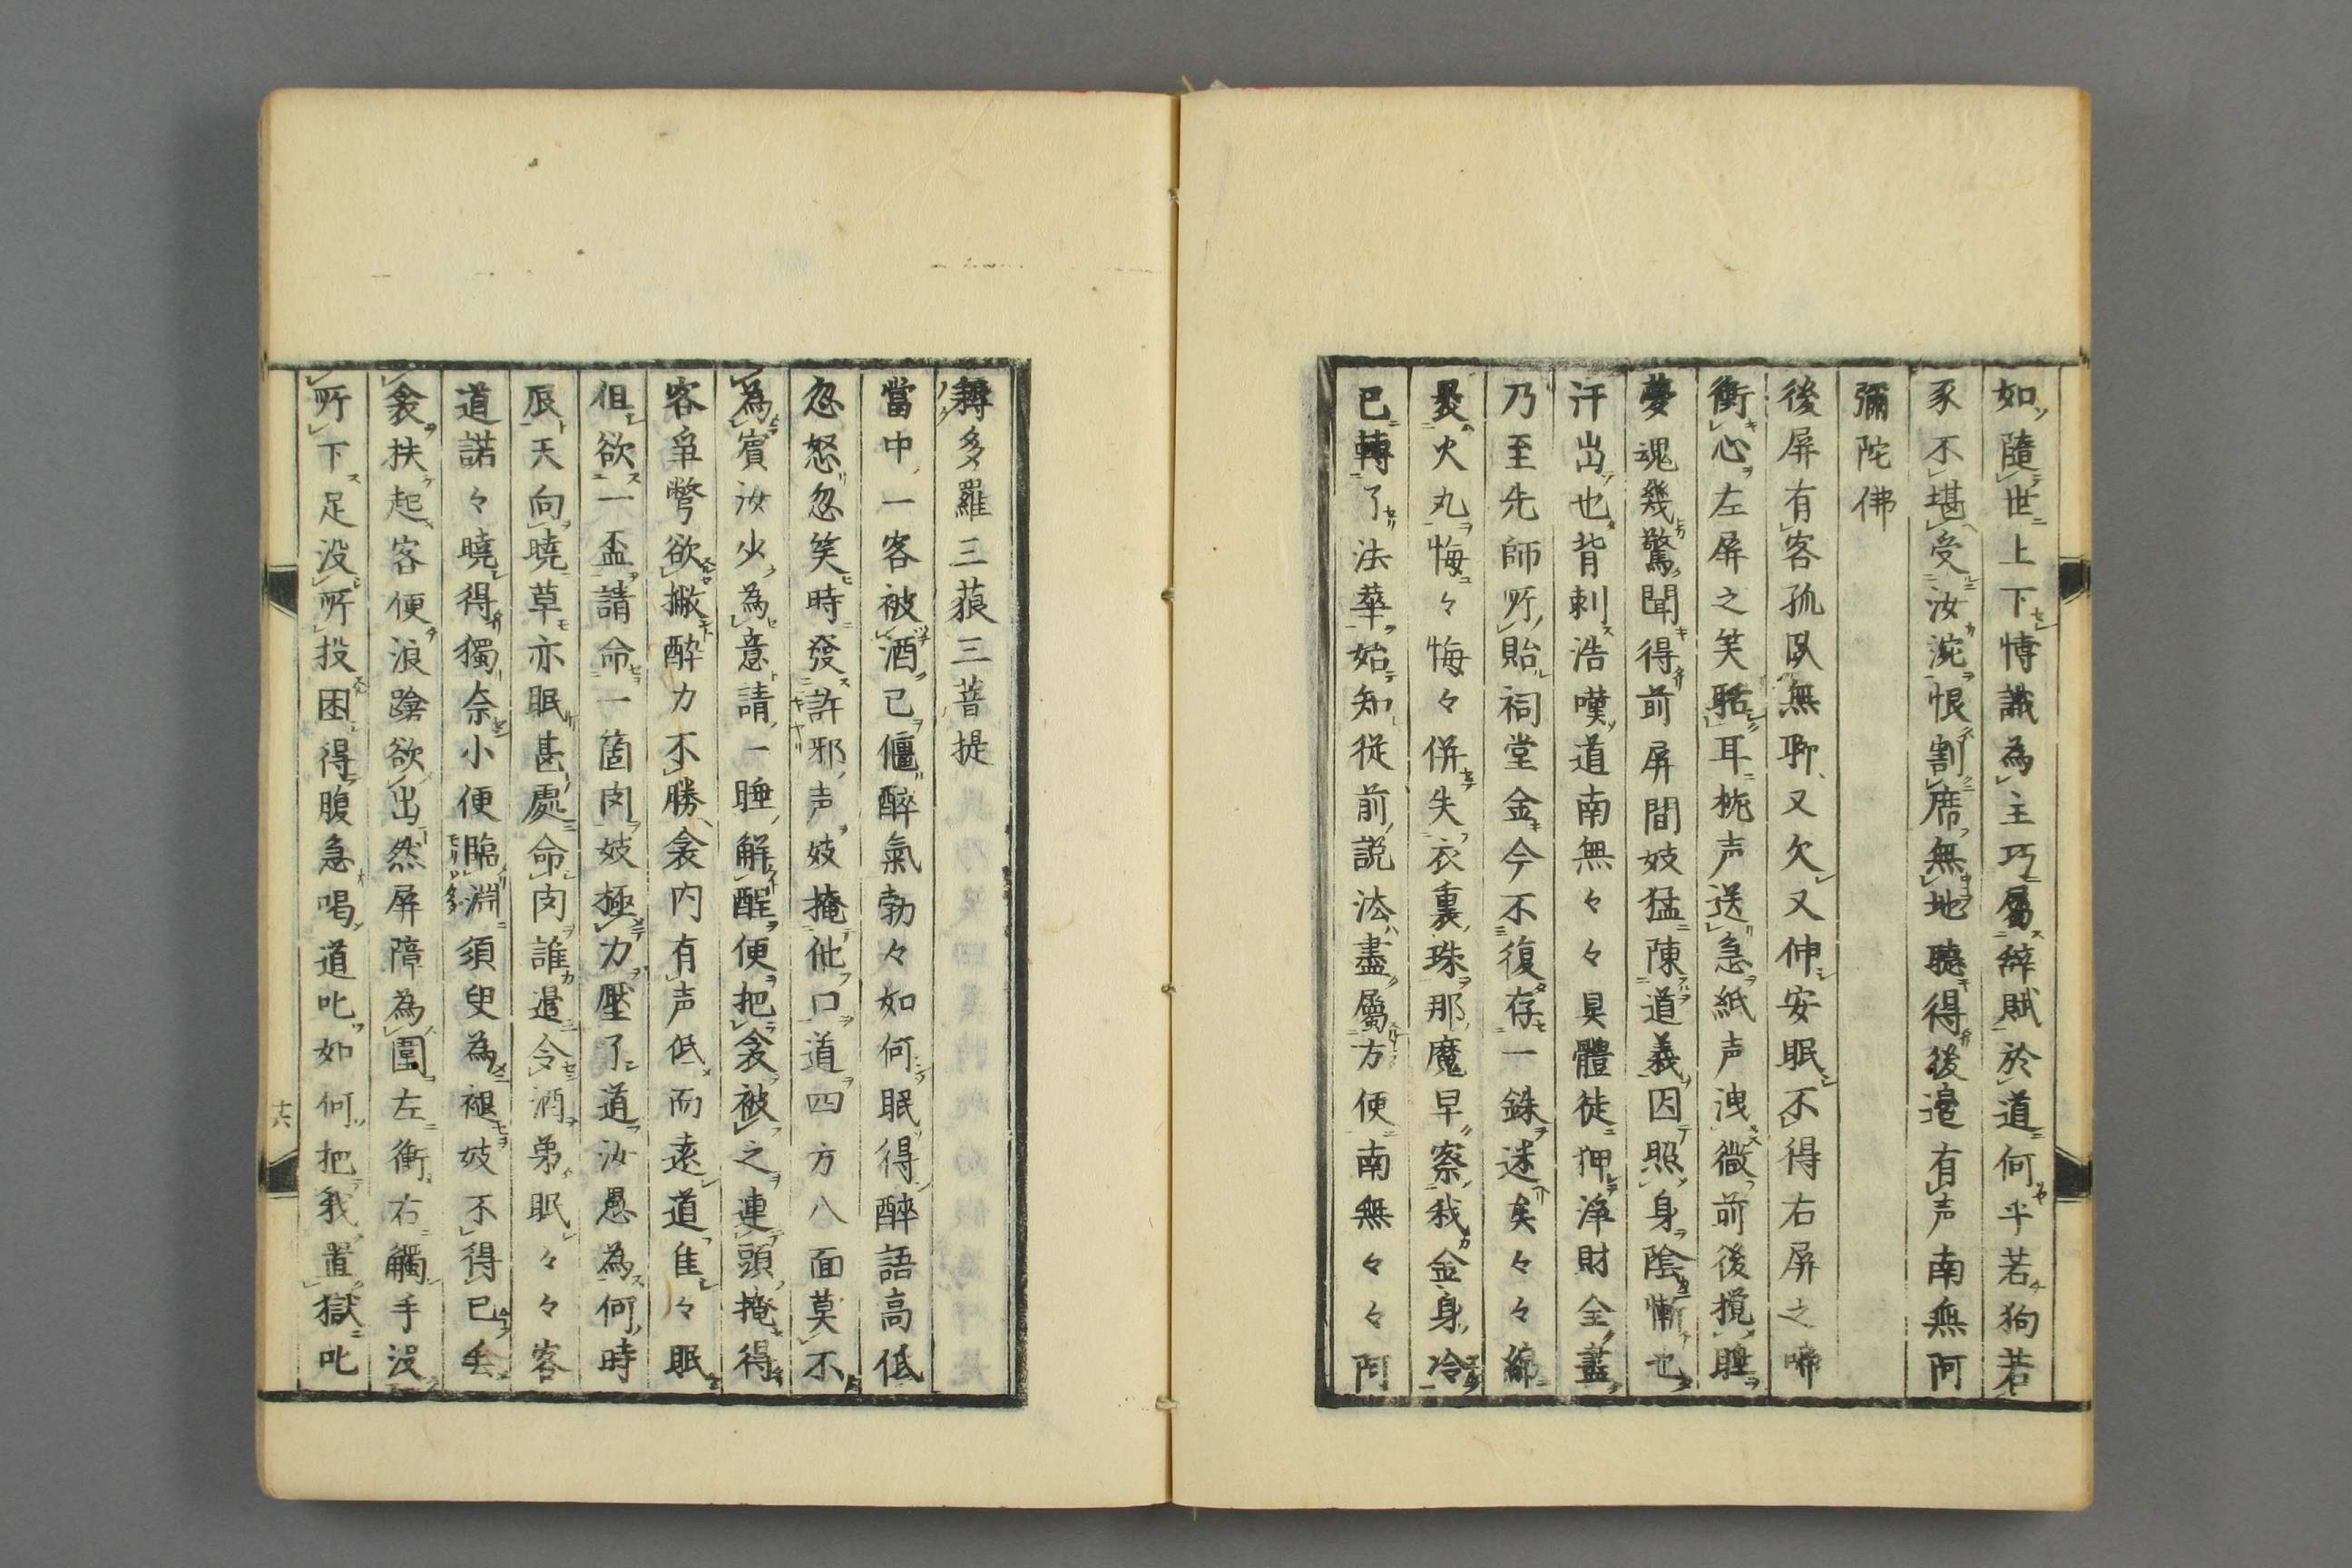 如隨世上下博識為主巧屬辭賦於道何乎若狗若
豕不堪受汝涴恨割席無地聽得後邉有声南無阿
彌陀佛
後屏有客孤臥無聊又欠又伸安眠不得右屏之啼
衝心左屏之笑聒耳枕声送急紙声洩微前後攪睡
夢魂幾驚聞得前屏間妓猛陳道義因照身陰慚也
汗出也背刺浩嘆道南無々々具體徒狎淨財全盡
乃至先師所貽祠堂金今不復存一銖迷矣々々綿
最火丸悔々悔々併失衣裏珠那魔早察我金身冷
已轉了法華始知從前說法盡屬方便南無々々阿
耨多羅三菠三菩提
當中一客被酒已僵醉氣勃々如何眠得醉語高低
忽怒忽笑時發許邪声妓掩他口道四方八面莫不
為賓汝少為意請一睡解酲便把衾被之連頭掩得
客争臂欲撇醉力不勝衾内有声低而遠道隹々眠
但欲一盃請命一箇肉妓極力壓了道汝愚為何時
辰天向曉草亦眠甚處命肉誰邉令酒弟眠々々客
道諾々曉得獨奈小便臨淵須臾為褪妓不得已丟
衾扶起客便浪蹌欲出然屏障為圍左衝右觸手没
所下足没所投困得腹急喝道叱如何把我置獄叱
十六